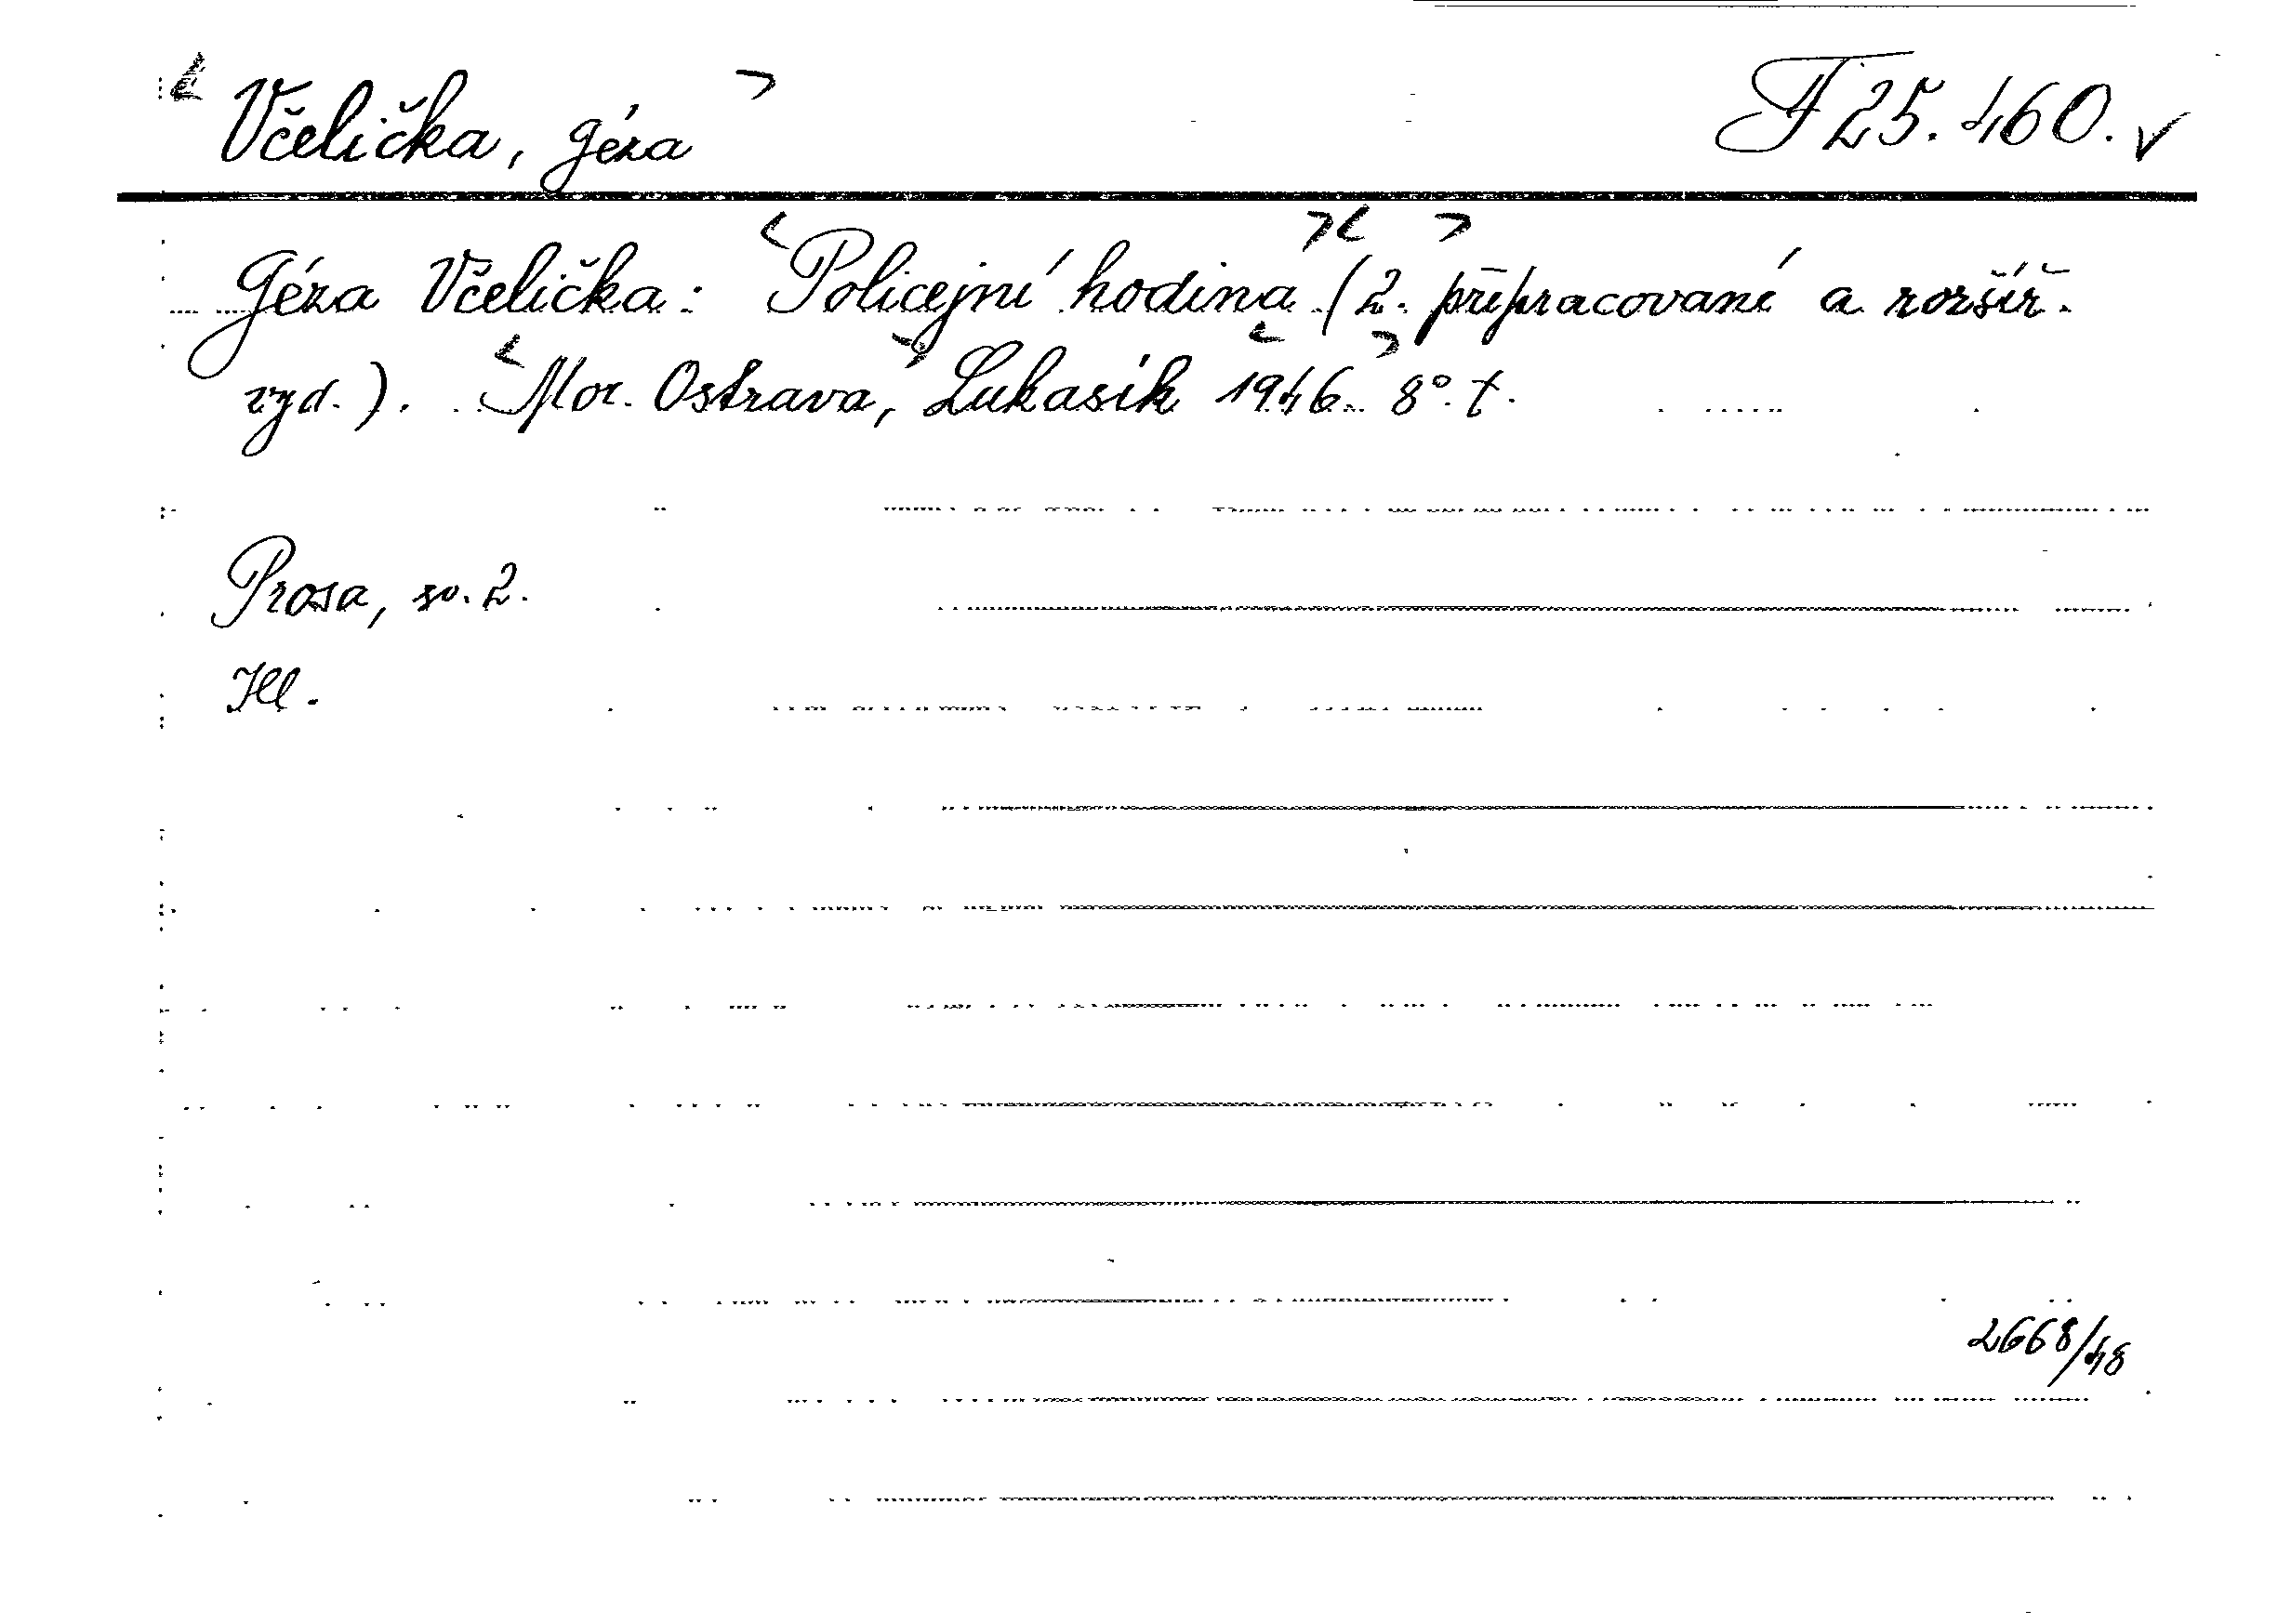 Včelička, Géza F 25.460.
Géza Včelička: Policejní hodina (2. přepracované a rozšíř.
vyd.). Mor. Ostrava, Lukasík 1946. 8°. t.
Prosa, sv. 2.
Ill.
2668/48